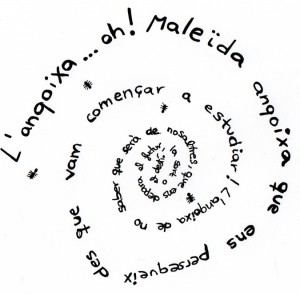 L'angoixa... oh! Maleïda angoixa que ens persegueix des que vam començar a estudiar! L'angoixa de no saber que serà de nosaltres, que ens depara el futur, la sort o el destí